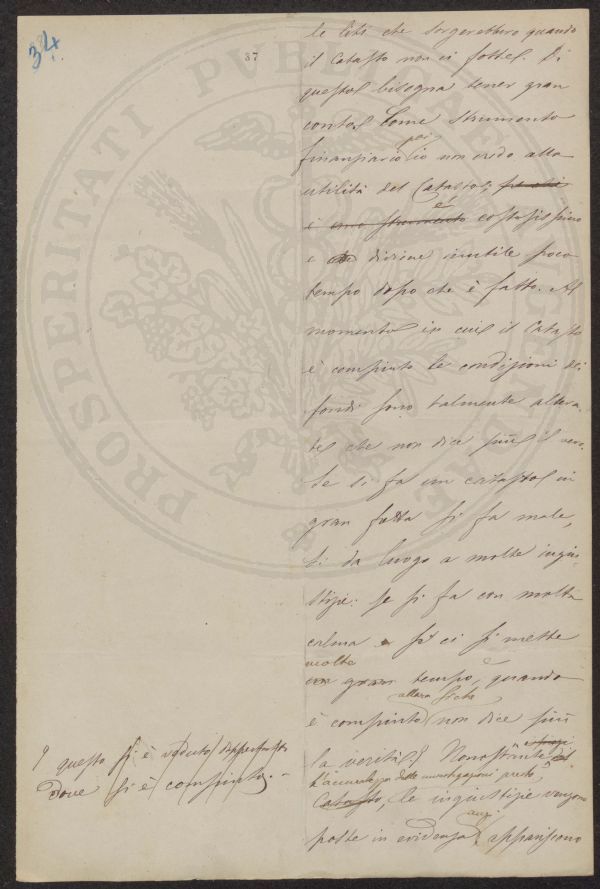 34.
37
le liti che sorgerebbero quando
il Catasto non ci fosse. Di
questo bisogna tener gran
conto. Come strumento
finanziario poi io non credo alla
utilità del Catasto; perchè
è uno strumento è costosissimo
e diviene inutile poco
tempo dopo che è fatto. Al
momento in cui il Catasto
è compiuto le condizioni dei
fondi sono talmente altera-
te che non dice più il vero.
Se si fa un catasto in
gran fretta si fa male,
si da luogo a molte ingiu-
stizie: se si fa con molta
calma e ci si mette
molto
gran tempo, quando
è compiuto allora non dice più
la verità. Nonostante
l'accuratezza delle investigazioni
Catasto, le ingiustizie vengono
poste in evidenza, anzi appariscono
questo si è veduto dappertutto
dove si è compiuto.
PROSPERITATI PVBLICAE